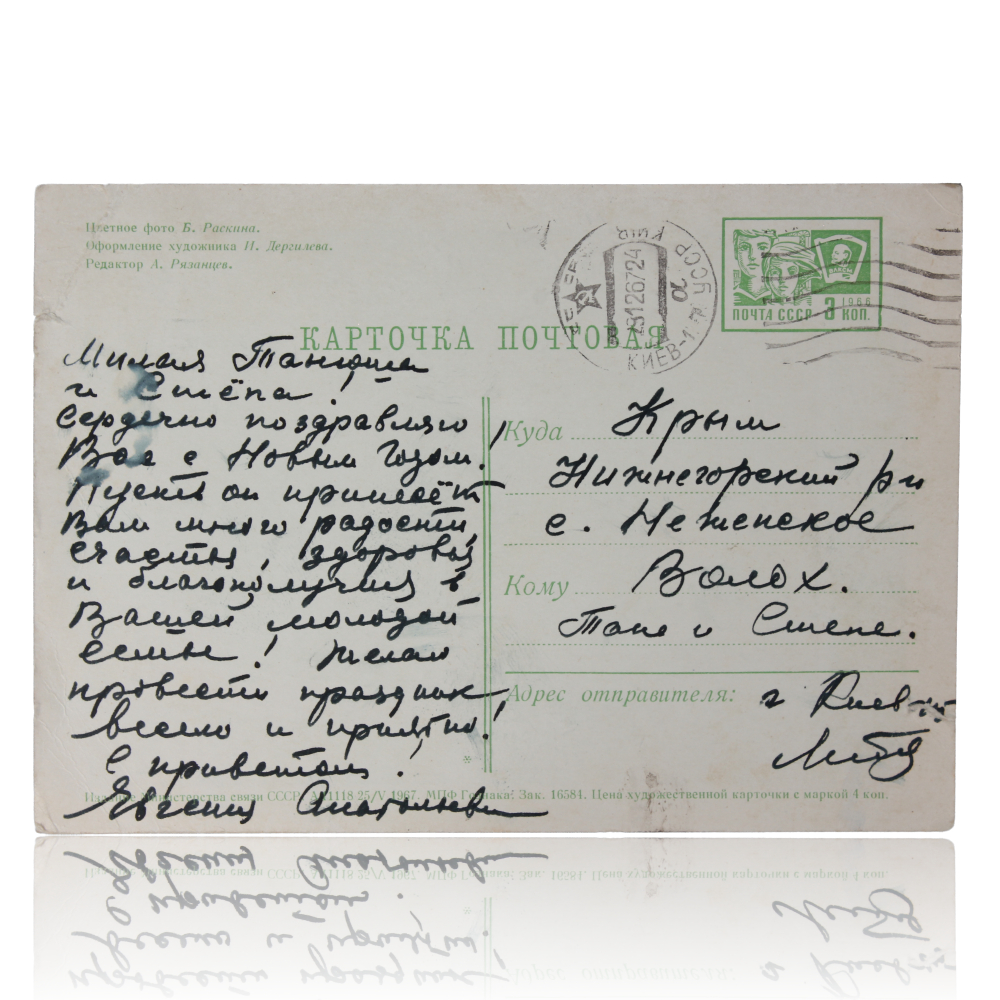 Цветное фото Б. Раскина.
Оформление художника И. Дергилева.
Редактор А. Рязанцев.
КИЇВ
УССР
281267 24
КИЕВ-1
ПОЧТА СССР 3 КОП.
1966
ВЛКСМ
КАРТОЧКА ПОЧТОВАЯ
Милая Танюша
и Стёпа!
Сердечно поздравляю
Вас с Новым Годом!
Пусть он принесёт
Вам много радости,
счастья, здоровья
и благополучия в
Вашей молодой
семье! Желаю
провести праздник
весело и приятно!
С приветом!
Евгения Анатольевна
Куда Крым
Нижнегорский р-н
с. Неженское
Кому Волох.
Тане и Степе.
Адрес отправителя: г Киев
*
Издание Министерства связи СССР. 1118 25/V 1967. МПФ Гознака. Зак. 16584. Цена художественной карточки с маркой 4 коп.